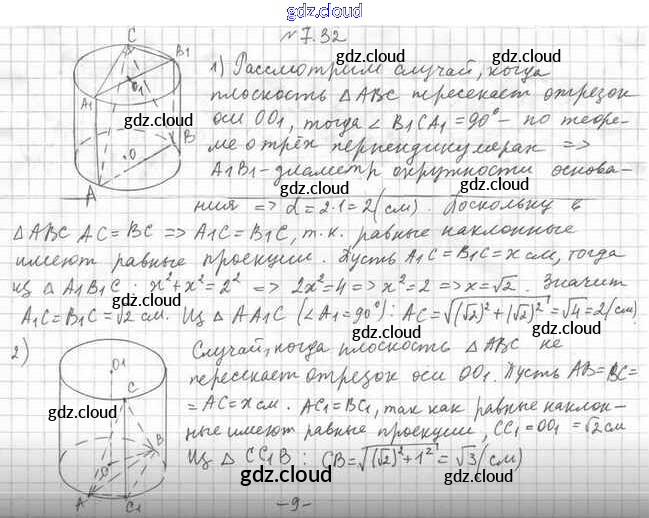 gdz.cloud
№ 7.32
1) Рассмотрим случай, когда
плоскость △ABC пересекает отрезок
оси OO₁, тогда ∠B₁CA₁ = 90° – по теоре-
ме о трёх перпендикулярах =>
A₁B₁ – диаметр окружности основа-
ния => d = 2·1 = 2 (см). Поскольку в
△ABC AC = BC => A₁C = B₁C, т.к. равные наклонные
имеют равные проекции. Пусть A₁C = B₁C = x см, тогда
из △A₁B₁C: x² + x² = 2² => 2x² = 4 => x² = 2 => x = √2. Значит
A₁C = B₁C = √2 см. Из △AA₁C (∠A₁ = 90°): AC = √((√2)² + (√2)²) = √4 = 2 (см)
2) Случай, когда плоскость △ABC не
пересекает отрезок оси OO₁. Пусть AB = BC =
= AC = x см. AC₁ = BC₁, так как равные наклон-
ные имеют равные проекции, CC₁ = OO₁ = √2 см
Из △CC₁B: CB = √((√2)² + 1²) = √3 (см)
C
B₁
O₁
A₁
B
O
A
O₁
C
B
O
A
C₁
gdz.cloud
gdz.cloud
gdz.cloud
gdz.cloud
gdz.cloud
gdz.cloud
gdz.cloud
gdz.cloud
gdz.cloud
gdz.cloud
gdz.cloud
gdz.cloud
-9-